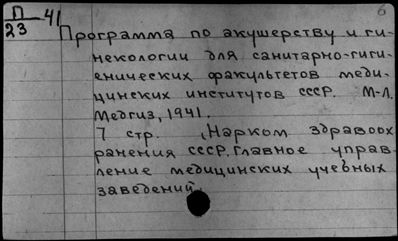 П 41
23
6
Программа по акушерству и ги-
некологии для санитарно-гиги-
енических факультетов меди-
цинских институтов СССР. М-Л.
Медгиз, 1941.
7 стр. (Нарком здравоох
ранения СССР. Главное управ-
ление медицинских учебных
заведений.